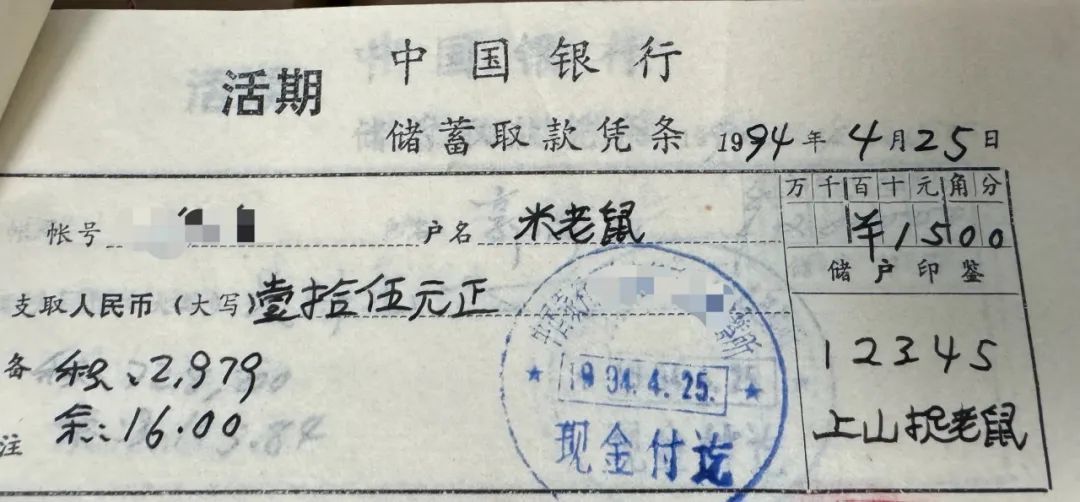 中国银行
活期
储蓄取款凭条 1994年4月25日
万千百十元角分
帐号 户名 米老鼠 羊1500
储户印鉴
支取人民币(大写)壹拾伍元正
12345
备注 积:2,979
余:16.00
上山捉老鼠
1994.4.25.
现金付讫